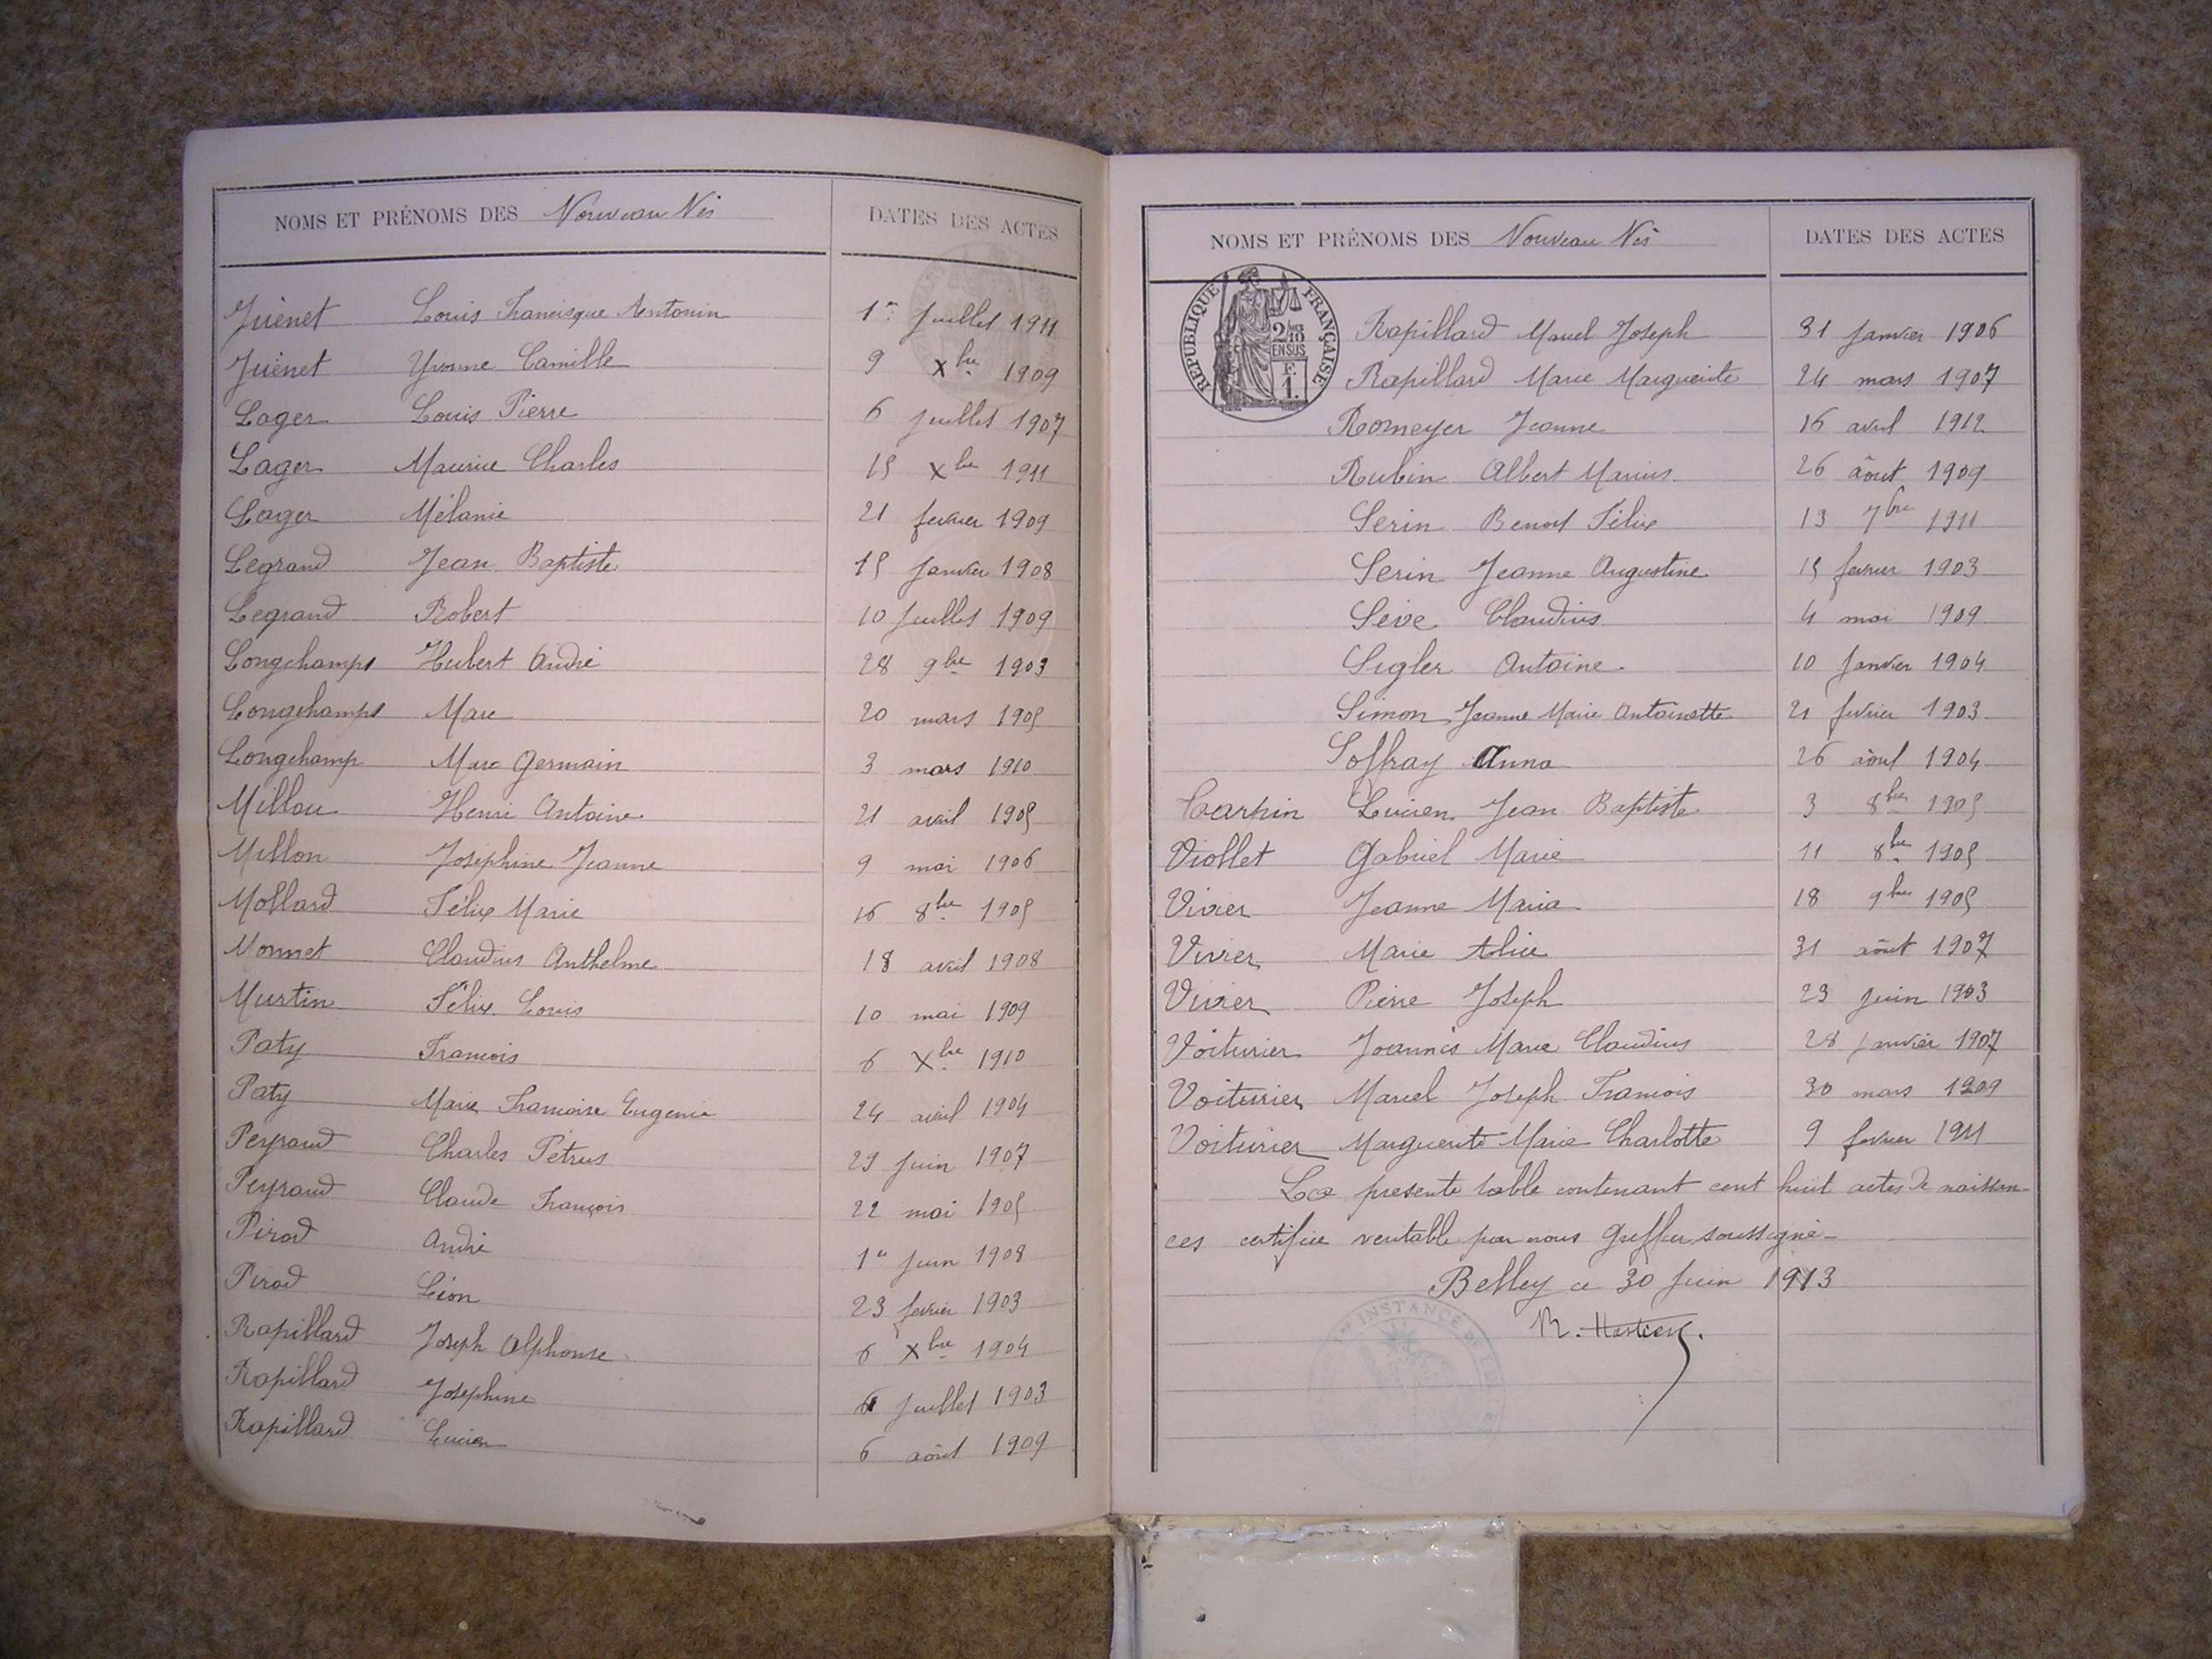 NOMS ET PRÉNOMS DES Nouveau Nés DATES DES ACTES
Juénet Louis Francisque Antonin 1er Juillet 1911
Juénet Yvonne Camille 9 Xbre 1909
Lager Louis Pierre 6 juillet 1907
Lager Maurice Charles 15 Xbre 1911
Lager Mélanie 21 fevrier 1909
Legrand Jean Baptiste 15 Janvier 1908
Legrand Robert 10 Juillet 1909
Longchamps Hubert André 28 9bre 1903
Longchamps Marc 20 mars 1905
Longchamp Marc Germain 3 mars 1910
Millon Henri Antoine 21 avril 1905
Millon Joséphine Jeanne 9 mai 1906
Mollard Félix Marie 16 8bre 1905
Monnet Claudius Anthelme 18 avril 1908
Murtin Félix Louis 10 mai 1909
Paty Francois 6 Xbre 1910
Paty Marie Francoise Eugenie 24 avril 1904
Peyraud Charles Pétrus 29 Juin 1907
Peyraud Claude François 22 mai 1905
Pirod André 1er Juin 1908
Pirod Léon 23 fevrier 1903
Rapillard Joseph Alphonse 6 Xbre 1904
Rapillard Joséphine 6 Juillet 1903
Rapillard Lucien 6 août 1909
NOMS ET PRÉNOMS DES Nouveau Nés DATES DES ACTES
RÉPUBLIQUE FRANÇAISE
2/10 EN SUS
F. 1.
Rapillard Marcel Joseph 31 Janvier 1906
Rapillard Marie Marguerite 24 mars 1907
Romeyer Jeanne 16 avril 1912
Rubin Albert Marius 26 âout 1909
Serin Benoit Félix 13 7bre 1911
Serin Jeanne Augustine 15 fevrier 1903
Sève Claudius 4 mai 1909
Sigler Antoine 10 Janvier 1904
Simon Jeanne Marie Antoinette 21 fevrier 1903
Soffray Anna 26 août 1904
Lucien Jean Baptiste 3 8bre 1905
Viollet Gabriel Marie 11 8bre 1905
Vivier Jeanne Maria 18 9bre 1905
Vivier Marie Alice 31 août 1907
Vivier Pierre Joseph 23 Juin 1903
Voiturier Joannès Marie Claudius 28 Janvier 1907
Voiturier Marcel Joseph Francois 30 mars 1909
Voiturier Marguerite Marie Charlotte 9 fevrier 1911
La presente table contenant cent huit actes de naissan-
ces certifiée veritable par nous Greffier soussigné
Belley ce 30 Juin 1913
INSTANCE DE